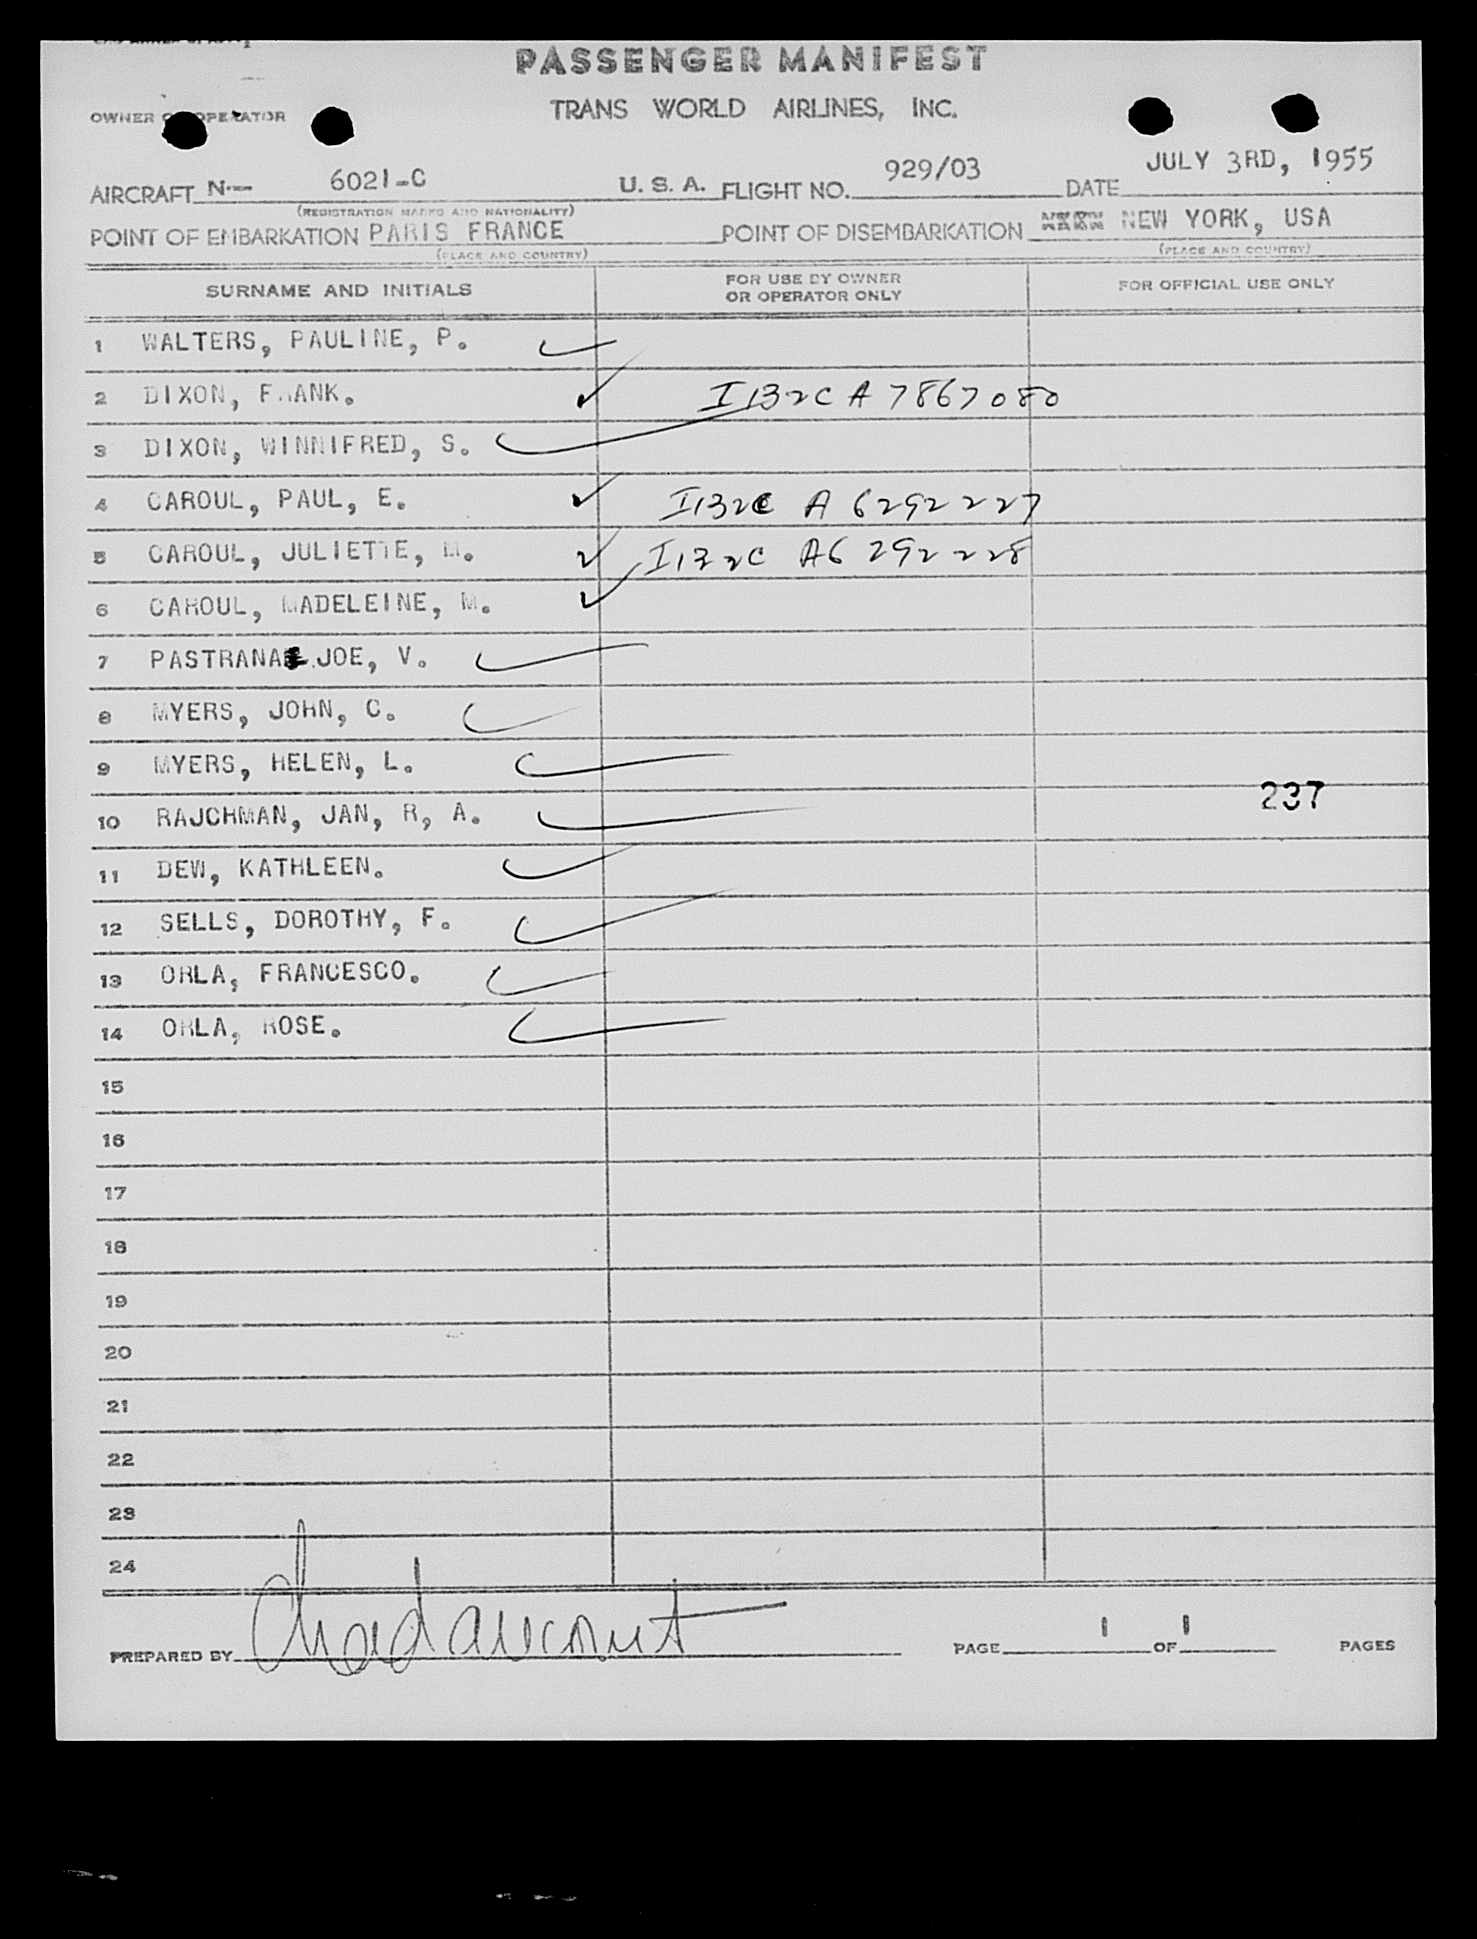 PASSENGER MANIFEST
OWNER OR OPERATOR TRANS WORLD AIRLINES, INC.
AIRCRAFT N-- 6021-C U. S. A. FLIGHT NO. 929/03 DATE JULY 3RD, 1955
(REGISTRATION MARKS AND NATIONALITY)
POINT OF EMBARKATION PARIS FRANCE POINT OF DISEMBARKATION NEW YORK, USA
(PLACE AND COUNTRY) (PLACE AND COUNTRY)
SURNAME AND INITIALS FOR USE BY OWNER OR OPERATOR ONLY FOR OFFICIAL USE ONLY
1 WALTERS, PAULINE, P.
2 DIXON, FRANK. I132C A7867080
3 DIXON, WINNIFRED, S.
4 CAROUL, PAUL, E. I132C A 6292227
5 CAROUL, JULIETTE, M. I132C A6 292228
6 CAROUL, MADELEINE, M.
7 PASTRANA JOE, V.
8 MYERS, JOHN, C.
9 MYERS, HELEN, L.
237
10 RAJCHMAN, JAN, R, A.
11 DEW, KATHLEEN.
12 SELLS, DOROTHY, F.
13 ORLA, FRANCESCO.
14 ORLA, ROSE.
15
16
17
18
19
20
21
22
23
24
PREPARED BY PAGE 1 OF 1 PAGES